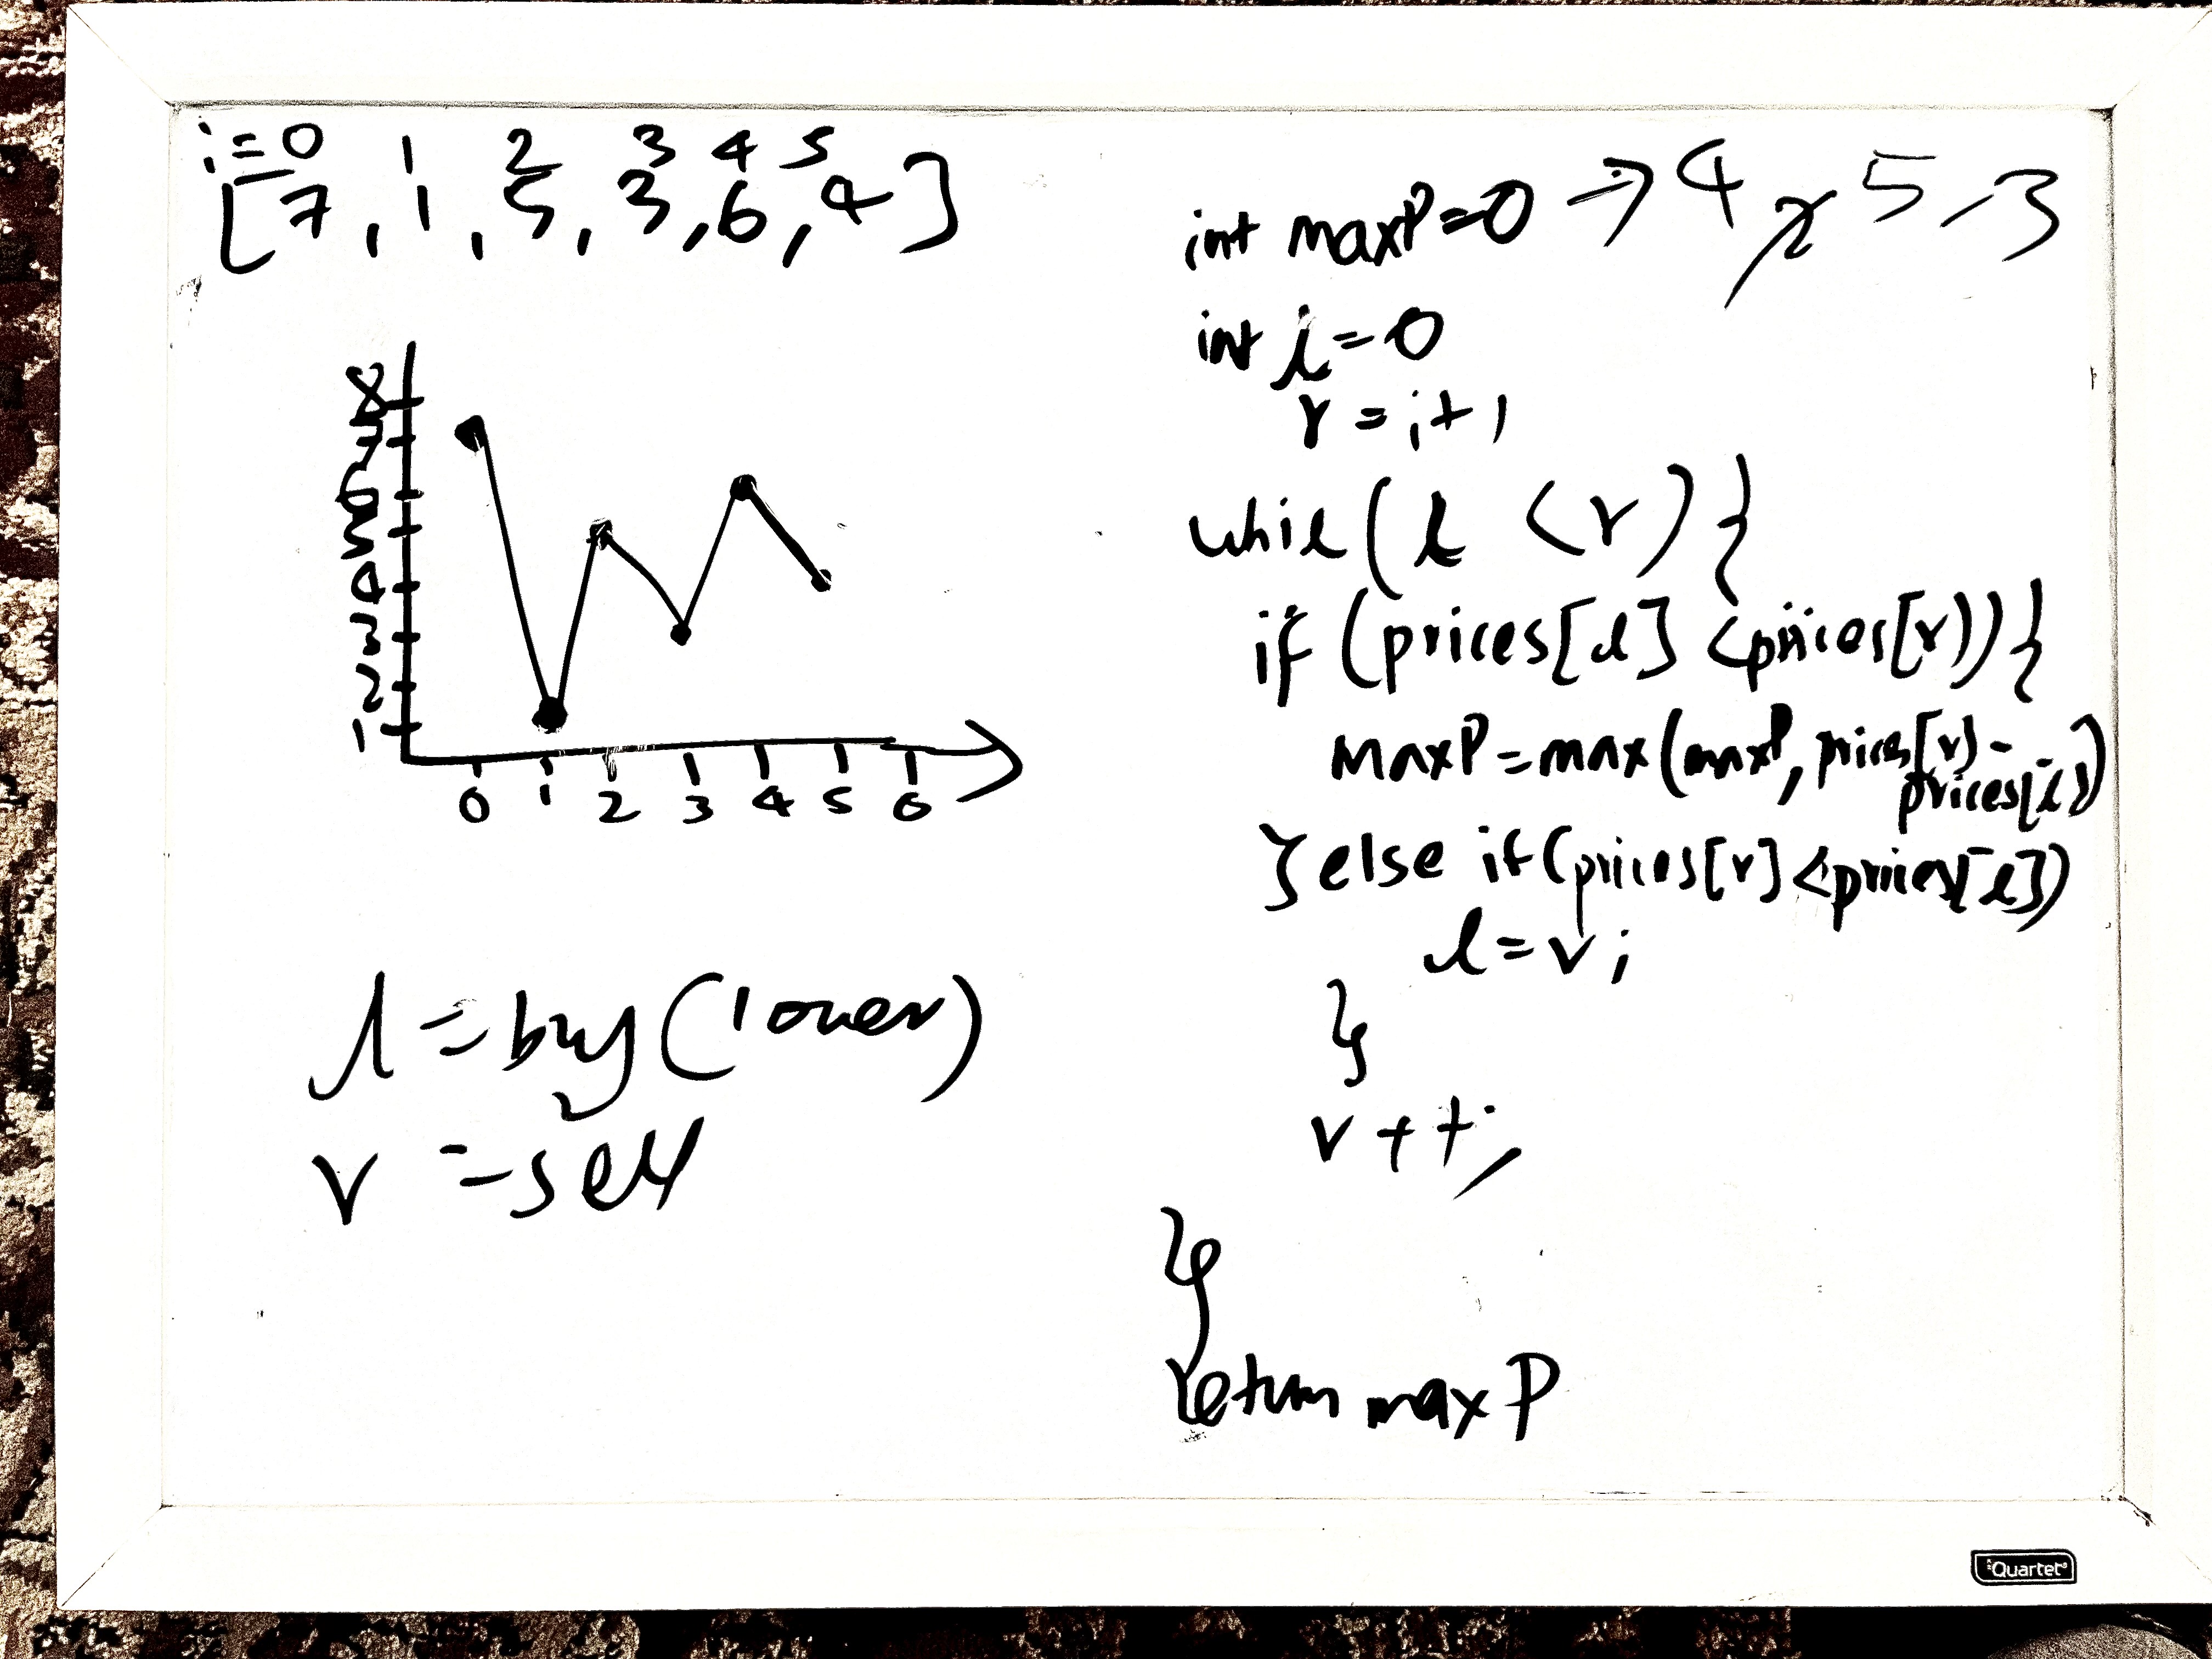 i=0 1 2 3 4 5
[7, 1, 5, 3, 6, 4]
8
7
6
5
4
3
2
1
0 1 2 3 4 5 6
l = buy (lower)
r = sell
int maxP=0 → 4, 2, 5, 3
int l=0
r = i+1
while (l < r) {
if (prices[l] < prices[r]) {
maxP = max(maxP, prices[r] -
prices[l])
} else if (prices[r] < prices[l])
l = r;
}
r++;
}
return maxP
Quartet